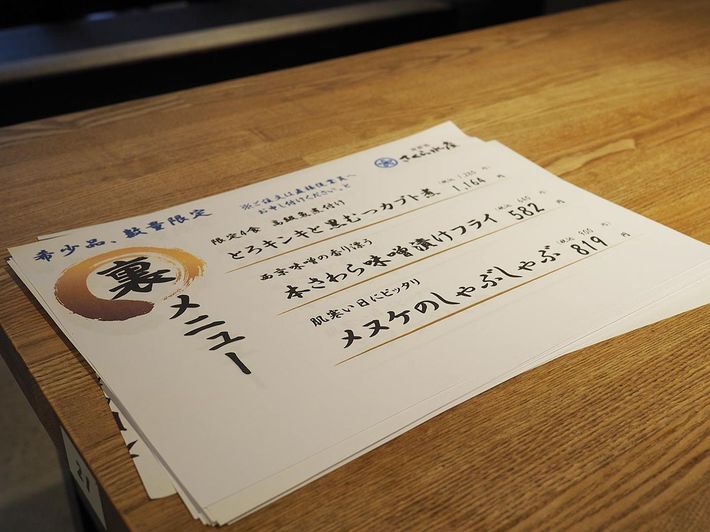 希少品、数量限定
裏メニュー
※ご注文は直接従業員へ
お申し付けください。
限定4食 高級魚煮付け
とろキンキと黒むつカブト煮
1,164 円
西京味噌の香り漂う
本さわら味噌漬けフライ
582 円
肌寒い日にピッタリ
メヌケのしゃぶしゃぶ
819 円
21